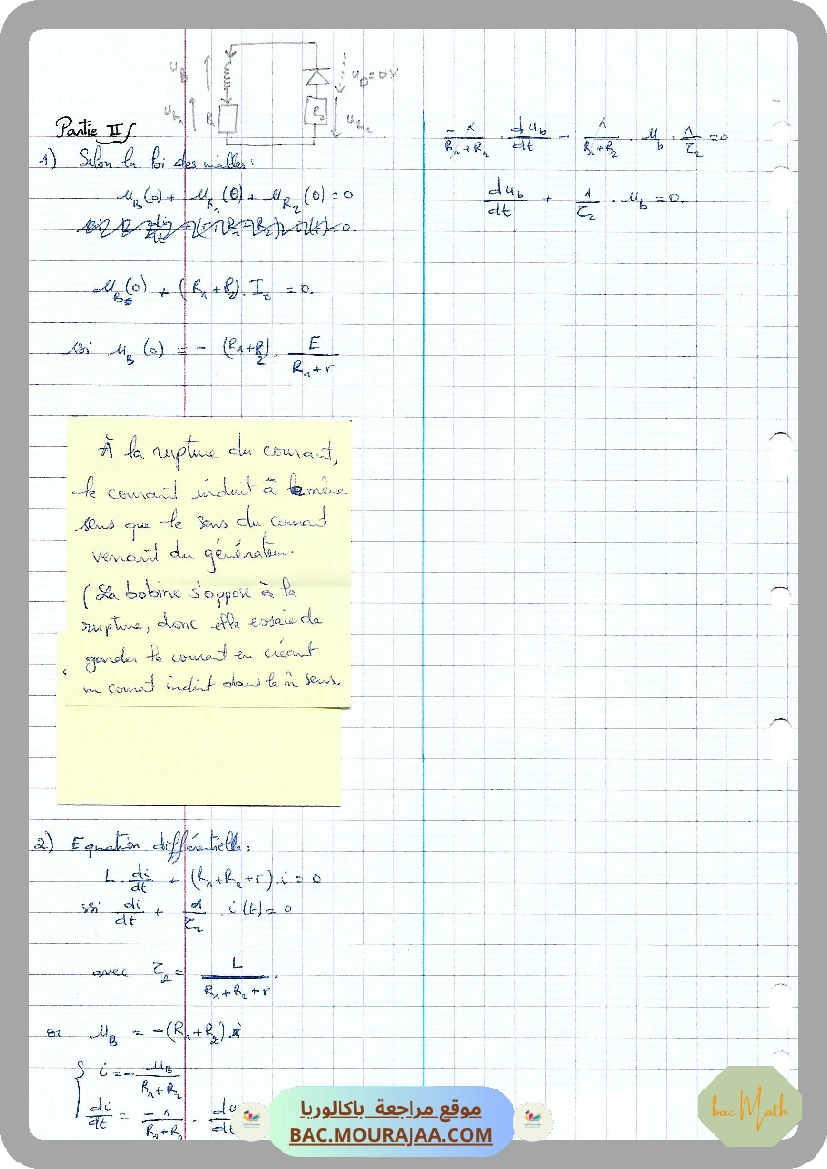 u_B
u_R₁
R₁
R₂
u_D=0V
u_R₂
Partie II/
1) Selon la loi des mailles:
u_B(0) + u_R₁(0) + u_R₂(0) = 0
u_B(0) + (R₁+R₂).I₀ = 0.
ssi u_B(0) = - (R₁+R₂) . E/(R₁+r)
À la rupture du courant,
le courant induit à le même
sens que le sens du courant
venant du générateur.
(La bobine s'oppose à la
rupture, donc elle essaie de
garder le courant en créant
un courant induit dans le m̂ sens.
2) Equation différentielle:
L.di/dt + (R₁+R₂+r).i = 0
ssi di/dt + 1/τ₂ . i(t) = 0
avec τ₂ = L/(R₁+R₂+r).
or u_B = -(R₁+R₂).i
{ i = - u_B/(R₁+R₂)
di/dt = -1/(R₁+R₂) . du
-1/(R₁+R₂) . du_b/dt - 1/(R₁+R₂) . u_b . 1/τ₂ = 0
du_b/dt + 1/τ₂ . u_b = 0.
موقع مراجعة باكالوريا
BAC.MOURAJAA.COM
bac Math